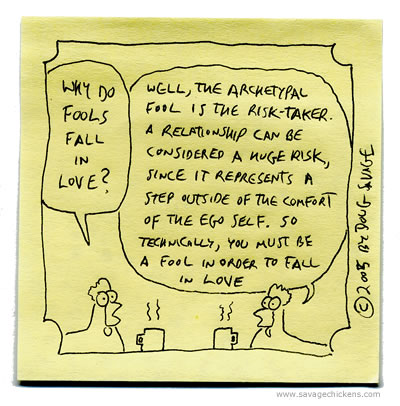 WHY DO
FOOLS
FALL
IN
LOVE?
WELL, THE ARCHETYPAL
FOOL IS THE RISK-TAKER.
A RELATIONSHIP CAN BE
CONSIDERED A HUGE RISK,
SINCE IT REPRESENTS A
STEP OUTSIDE OF THE COMFORT
OF THE EGO SELF. SO
TECHNICALLY, YOU MUST BE
A FOOL IN ORDER TO FALL
IN LOVE
© 2005 BY DOUG SAVAGE
www.savagechickens.com